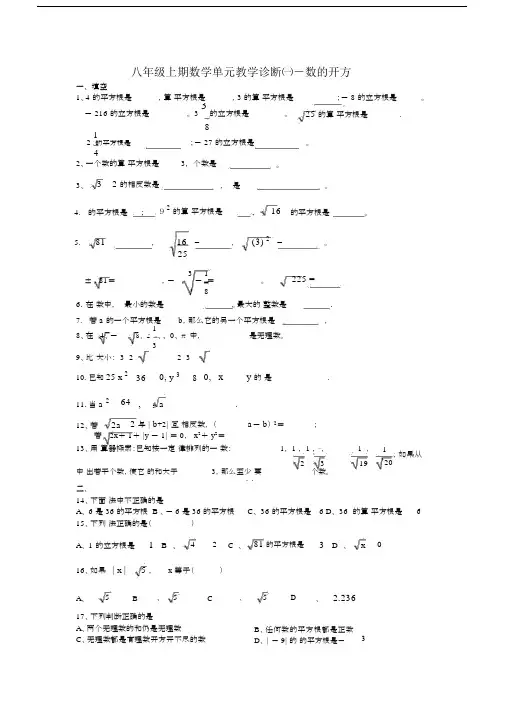 八年级上期数学单元教学诊断㈠－数的开方
一、填空
1、4 的平方根是 , 算 平方根是 , 3 的算 平方根是 ;－ 8 的立方根是 。
－ 216 的立方根是 。 3 3/8 的立方根是 。 √25 的算 平方根是 .
2 1/4 的平方根是 ;－ 27 的立方根是 。
2、一个数的算 平方根是 3, 个数是 。
3、 √3 2 的相反数是 , 是 。
4. 的平方根是 ; 9 2 的算 平方根是 , √16 的平方根是 。
5. √81 , √16/25 = , √(3) 2 = 。
± √81＝ ,－ 3√－1/8＝ 。 √225 =
6、在 数中, 最小的数是 , 最大的 整数是 .
7. 若 a 的一个平方根是 b, 那么它的另一个平方根是 ,
8、在 中, 是无理数。
9、比 大小: 3√2 2√3
10、已知 25 x 2 36 0, y 3 8 0, x y 的 是 .
11、当 a 2 64 , 3√a .
12、若 √2a 2 与 | b+2| 互 相反数, ( a－ b) 2＝ ;
若 √2x＋ 1＋ |y － 1| ＝ 0, x²＋ y²＝
13、用 算器探索：已知按一定 律排列的一 数: 1, 1/√2, 1/√3, …, 1/√19, 1/√20, 如果从
中 出若干个数, 使它 的和大于 3, 那么至少 要 个数,
二、
14、下面 法中不正确的是
A、 6 是 36 的平方根 B 、－ 6 是 36 的平方根 C、 36 的平方根是 6 D、 36 的算 平方根是 6
15、下列 法正确的是( )
A、 1 的立方根是 1 B 、 √4 2 C 、 √81 的平方根是 3 D 、 √x 0
16、如果 | x | √5 , x 等于( )
A、 √5 B 、 √5 C 、 √5 D 、 2.236
17、下列判断正确的是
A、两个无理数的和仍是无理数 B、任何数的平方根都是正数
C、无理数都是有理数开方开不尽的数 D、| － 9| 的 的平方根是－ 3